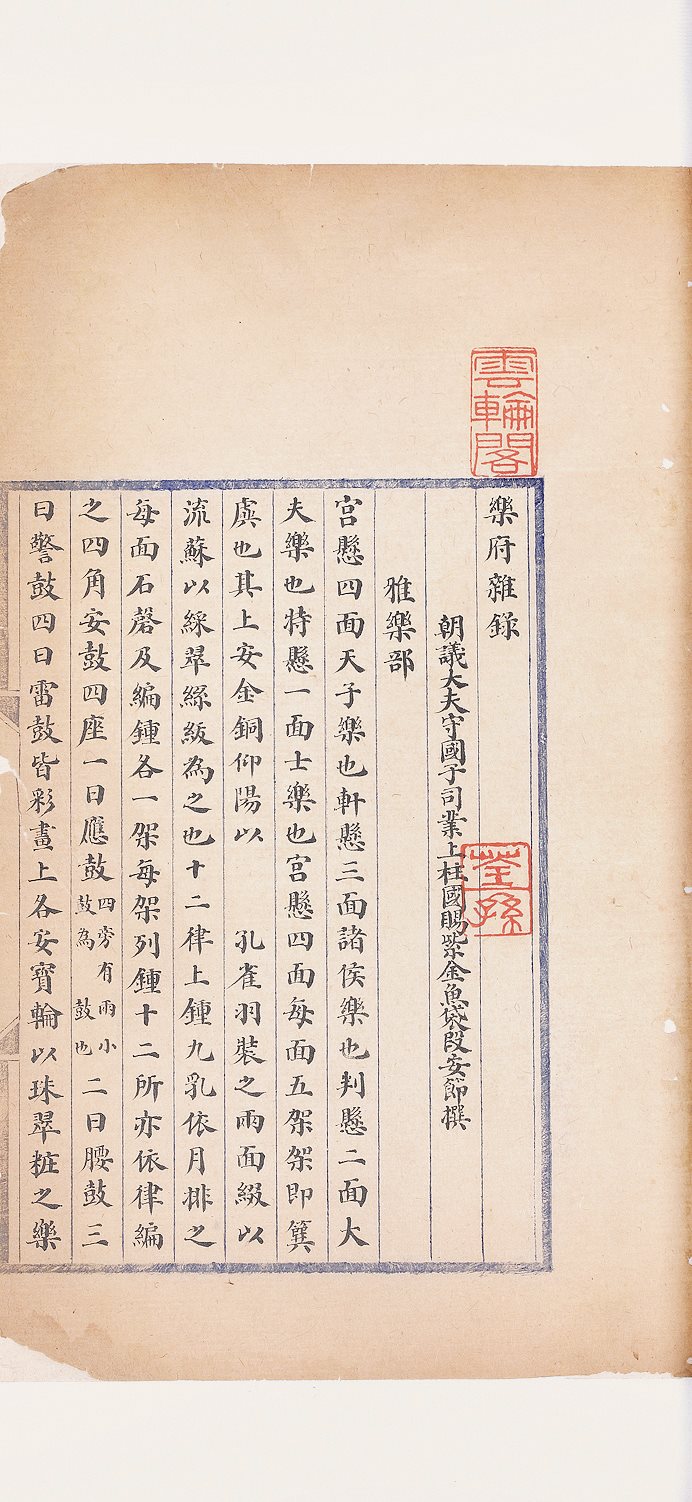 雲輪閣
樂府雜錄
荃孫
朝議大夫守國子司業上柱國賜紫金魚袋段安節撰
雅樂部
宮懸四面天子樂也軒懸三面諸侯樂也判懸二面大
夫樂也特懸一面士樂也宮懸四面每面五架架即簨
虡也其上安金銅仰陽以 孔雀羽裝之兩面綴以
流蘇以綵翠絲紱為之也十二律上鍾九乳依月排之
每面石磬及編鍾各一架每架列鍾十二所亦依律編
之四角安鼓四座一曰應鼓四旁有兩小鼓為 鼓也二曰腰鼓三
曰警鼓四曰雷鼓皆彩畫上各安寶輪以珠翠粧之樂